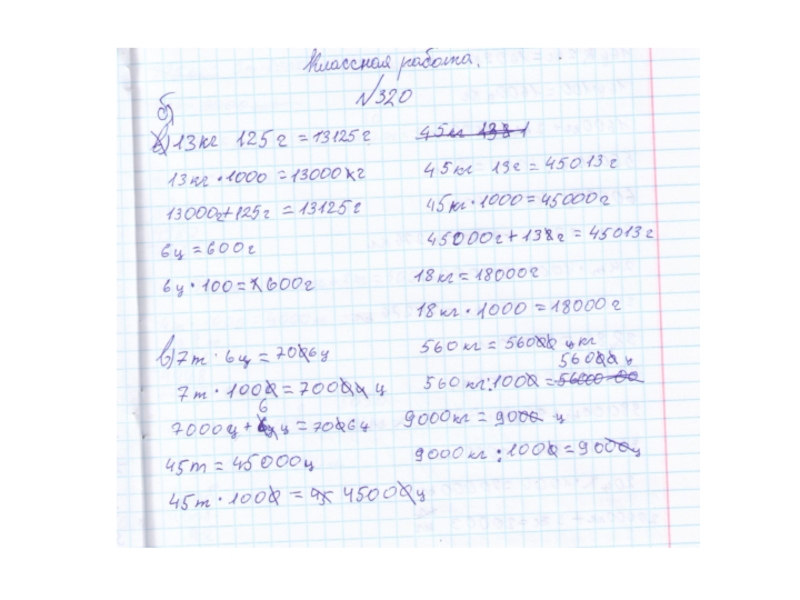 Классная работа.
№320
б)
13кг 125г = 13125г
13кг · 1000 = 13000г
13000г+125г = 13125г
6ц = 600г
6ц · 100 = 600г
45кг 13г = 45013г
45кг · 1000 = 45000г
45000г + 13г = 45013г
18кг = 18000г
18кг · 1000 = 18000г
560кг = 5600 ц кг
560 кг : 100 = 5600 ц
9000кг = 9000 ц
9000кг : 1000 = 9000ц
в) 7т · 6ц = 7006ц
7т · 1000 = 7000 ц
7000ц + 6ц = 7006ц
45т = 45000ц
45т · 1000 = 45000ц